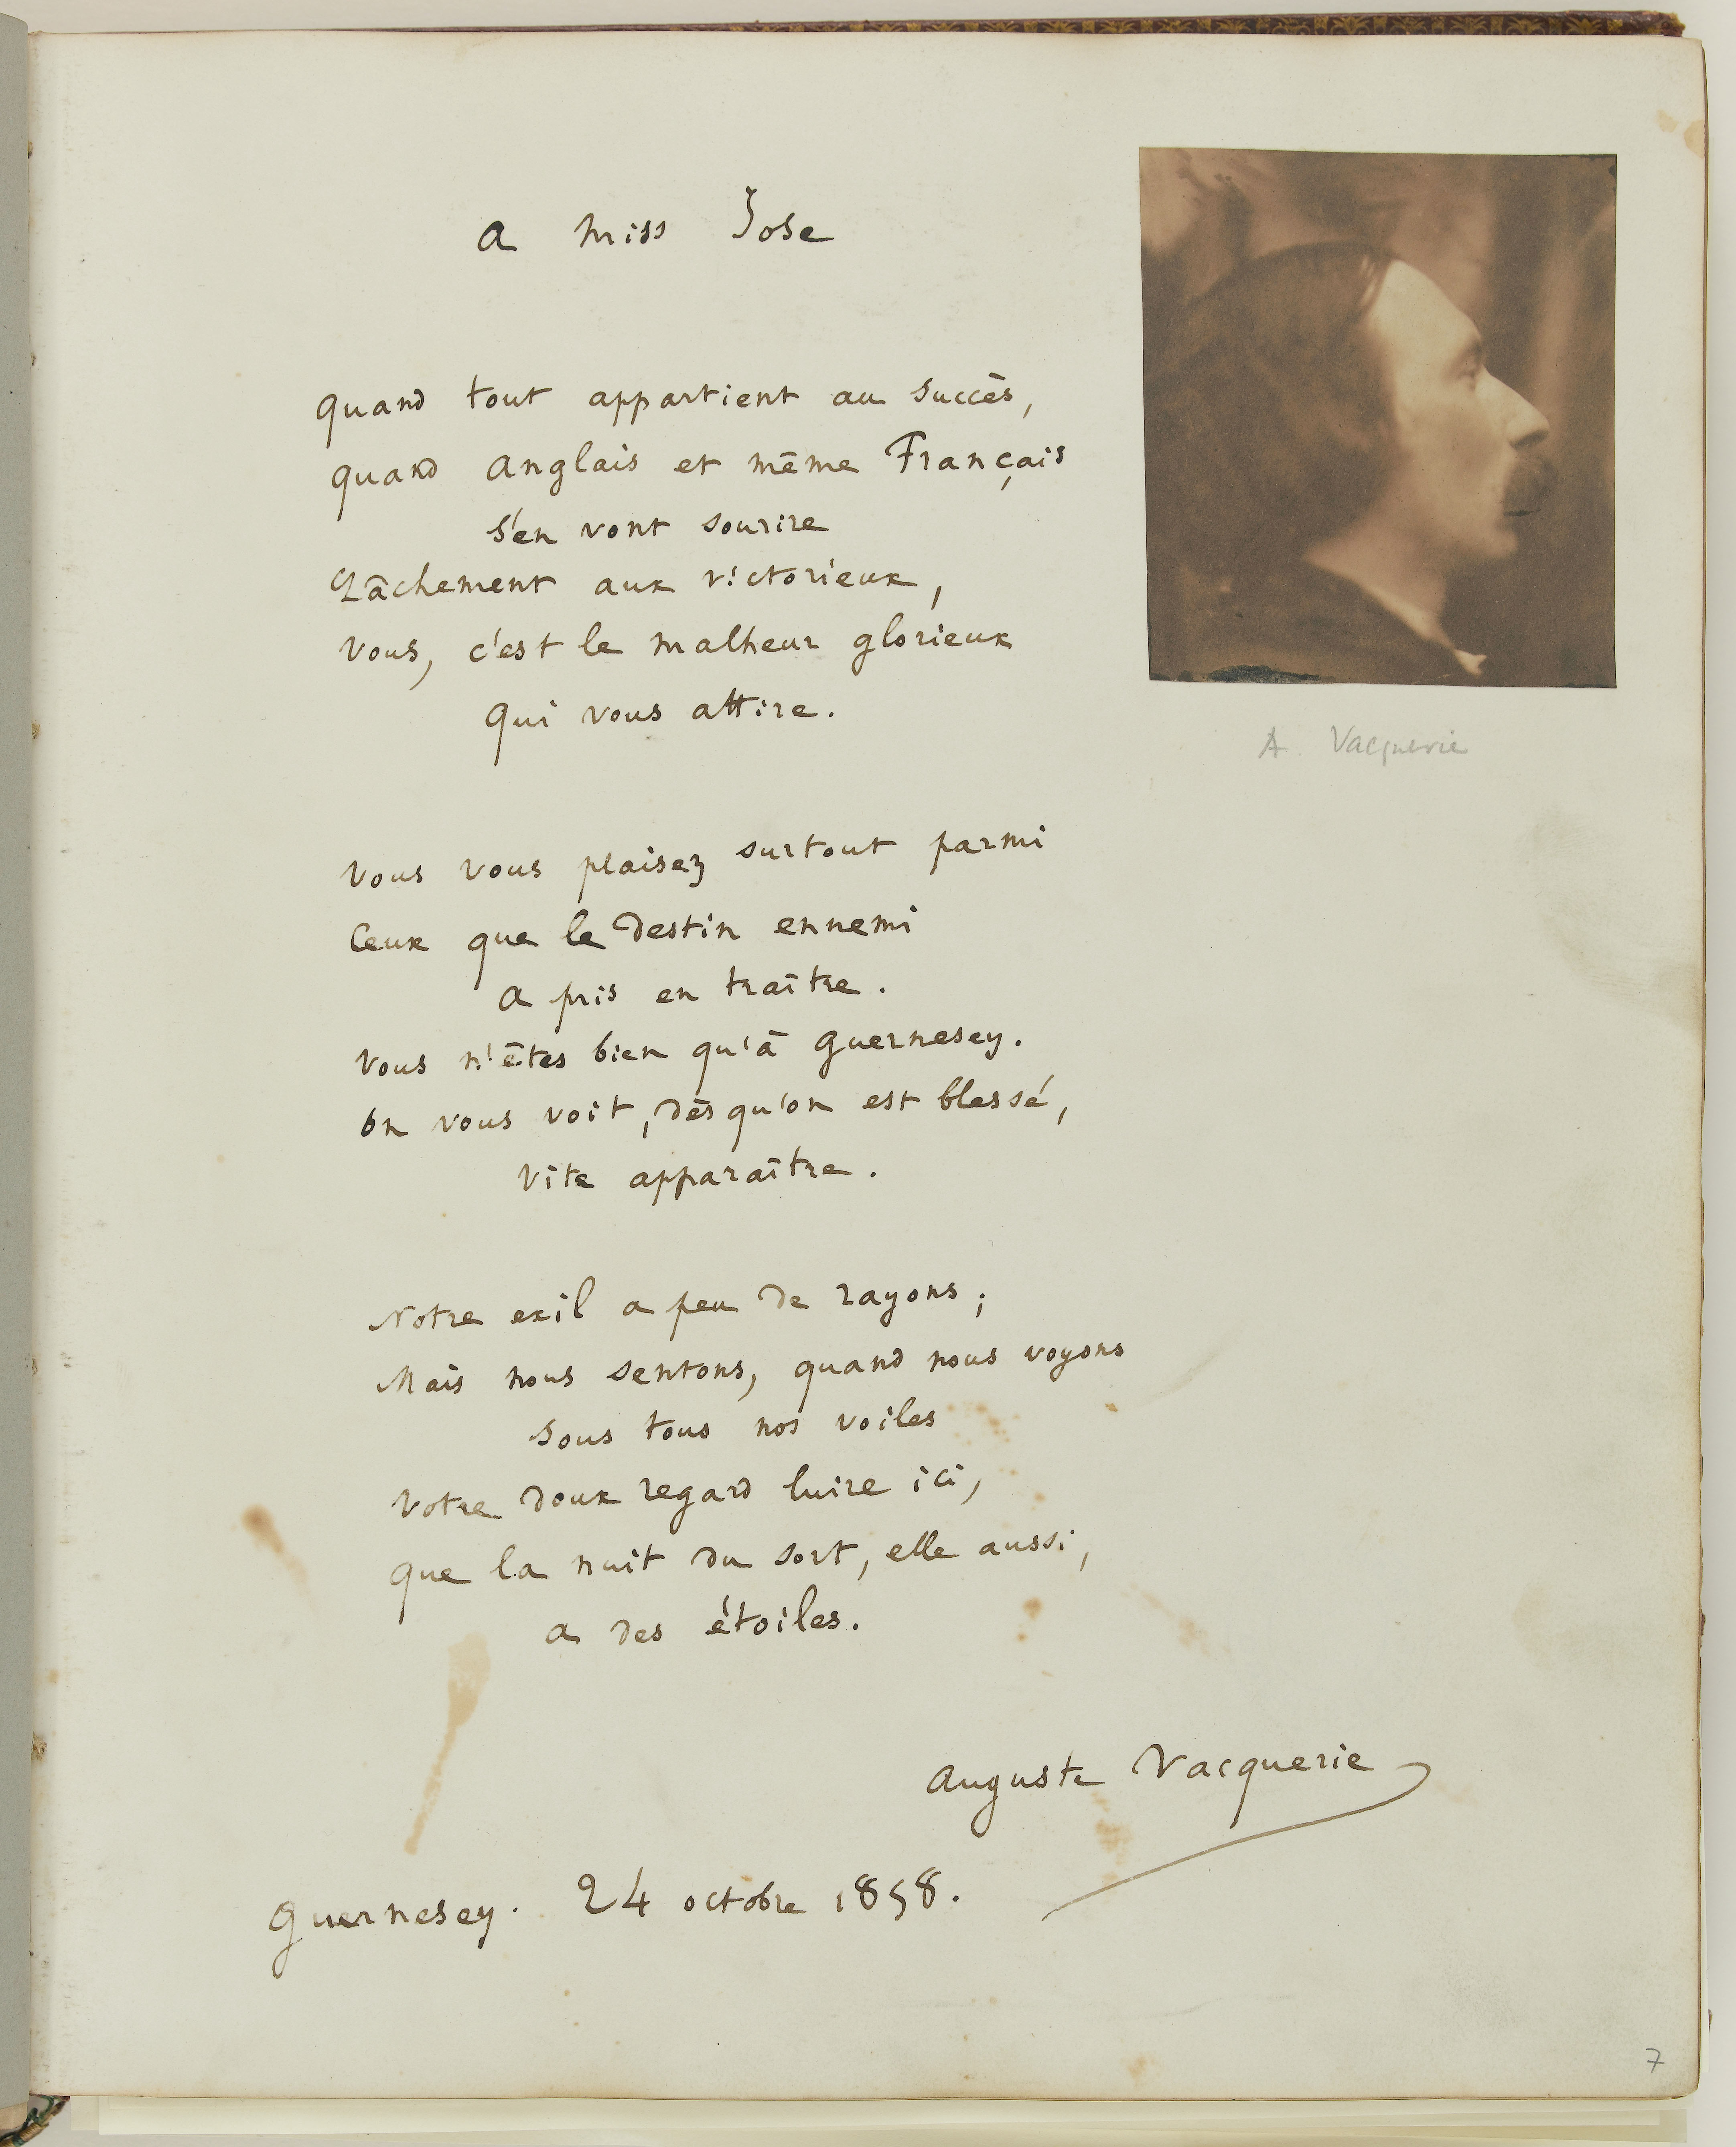 A miss Jose
Quand tout appartient au succès,
Quand Anglais et même Français
S'en vont sourire
Lâchement aux victorieux,
Vous, c'est le malheur glorieux
Qui vous attire.
Vous vous plaisez surtout parmi
Ceux que le destin ennemi
A pris en traître.
Vous n'êtes bien qu'à Guernesey.
On vous voit, dès qu'on est blessé,
Vite apparaître.
Notre exil a peu de rayons ;
Mais nous sentons, quand nous voyons
Sous tous nos voiles
Votre doux regard luire ici,
Que la nuit du sort, elle aussi,
A des étoiles.
Auguste Vacquerie
Guernesey. 24 octobre 1858.
A. Vacquerie
7